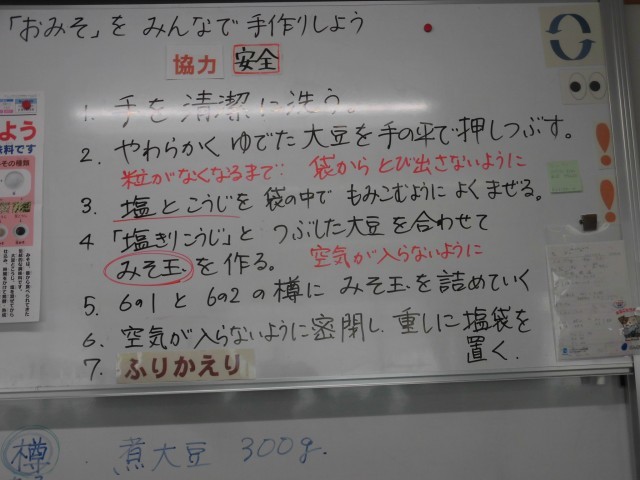 「おみそ」を みんなで 手作りしよう
協力 安全
1. 手を 清潔に洗う。
2. やわらかく ゆでた 大豆を 手の平で 押しつぶす。
粒がなくなるまで 袋から とび出さないように
3. 塩とこうじを 袋の中で もみこむように よく まぜる。
4 「塩きりこうじ」と つぶした大豆を合わせて
みそ玉を作る。 空気が入らないように
5. 6の1 と 6の2 の 樽に みそ玉を 詰めていく
6. 空気が入らないように密閉し 重しに塩袋を
置く.
7. ふりかえり
樽 煮大豆 300g.
よう
料です
その種類